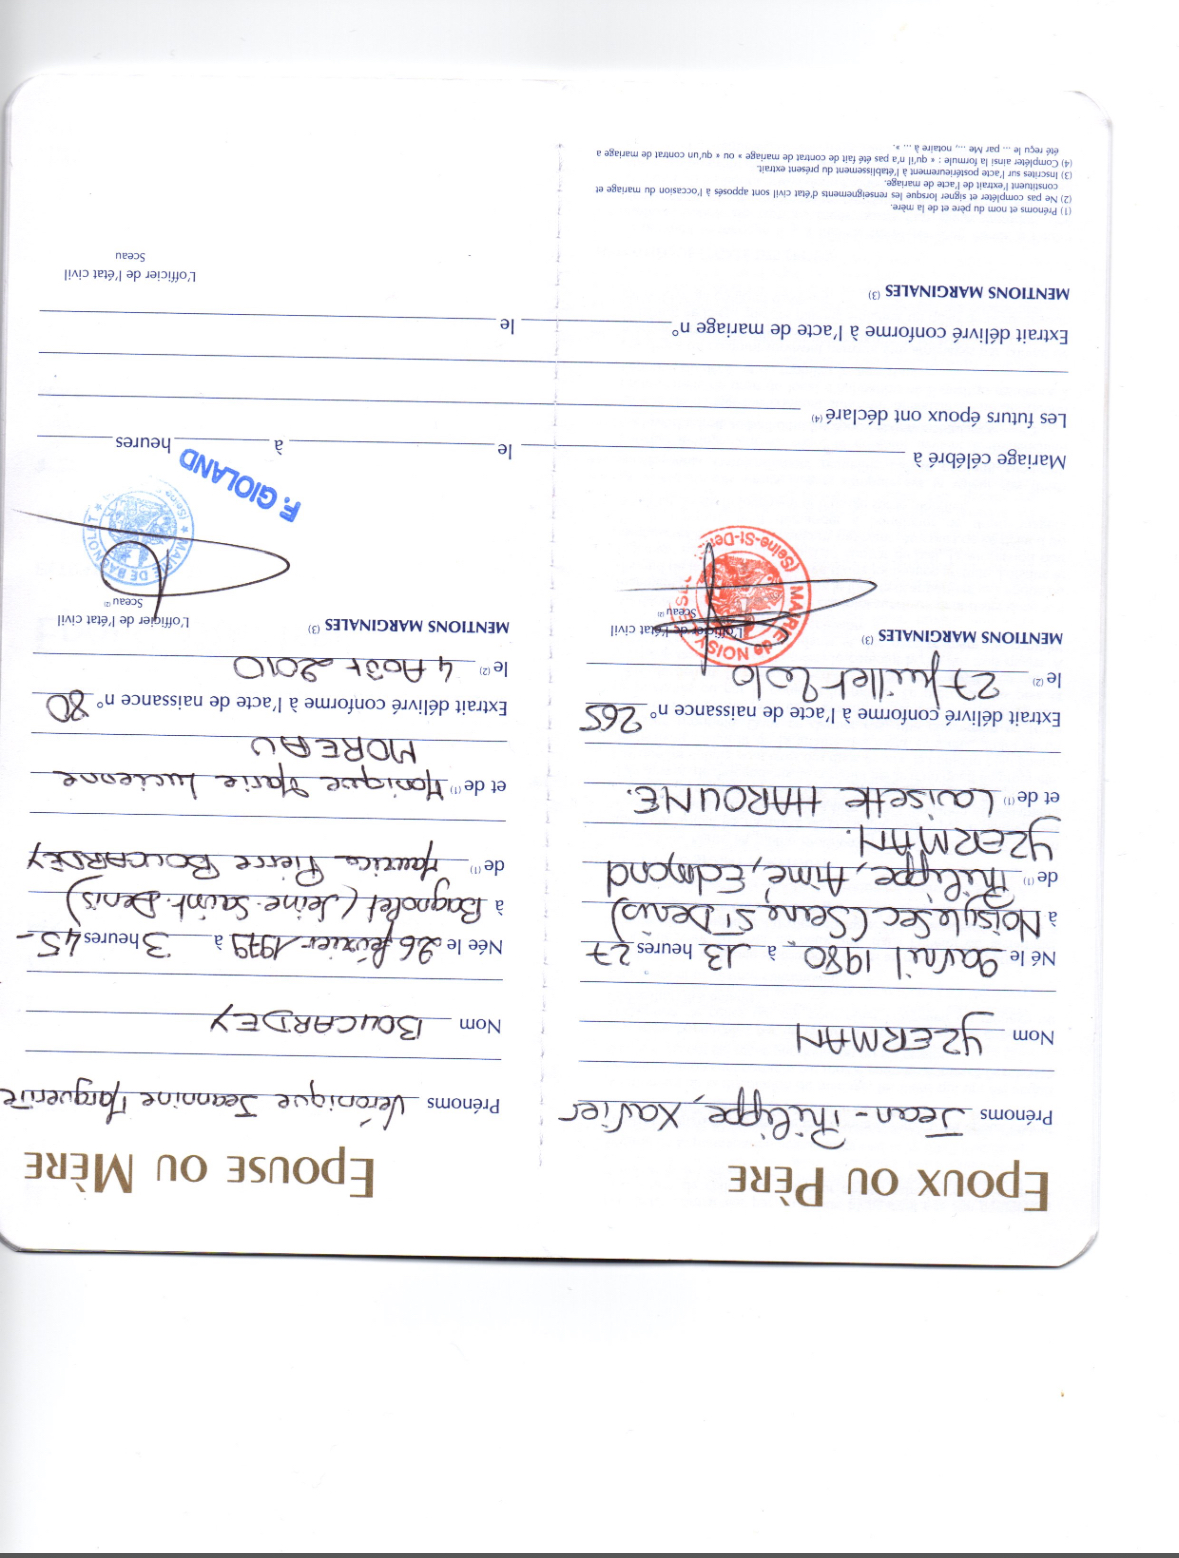 EPOUX OU PÈRE
Prénoms Jean-Philippe, Xavier
Nom YZERMAN
Né le 9 avril 1980 à 13 heures 27
à Noisy le Sec (Seine St Denis)
de (1) Philippe, Aimé, Edmond
YZERMAN.
et de (1) Louisette HAROUNE.
Extrait délivré conforme à l'acte de naissance n° 265
le (2) 27 juillet 2010
MENTIONS MARGINALES (3)
L'officier de l'état civil
Sceau (2)
MAIRIE de NOISY
(Seine-St-Denis
EPOUSE OU MÈRE
Prénoms Véronique Jeannine Marguerite
Nom BOUCARDEY
Née le 26 février 1979 à 3 heures 45 -
à Bagnolet (Seine-Saint-Denis)
de (1) Maurice Pierre BOUCARDEY
et de (1) Monique Marie Lucienne
MOREAU
Extrait délivré conforme à l'acte de naissance n° 80
le (2) 4 Août 2010
MENTIONS MARGINALES (3)
L'officier de l'état civil
Sceau (2)
MAIRIE DE BAGNOLET
(Seine
F. GIOLAND
Mariage célébré à le à heures
Les futurs époux ont déclaré (4)
Extrait délivré conforme à l'acte de mariage n° le
MENTIONS MARGINALES (3)
L'officier de l'état civil
Sceau
(1) Prénoms et nom du père et de la mère.
(2) Ne pas compléter et signer lorsque les renseignements d'état civil sont apposés à l'occasion du mariage et
constituent l'extrait de l'acte de mariage.
(3) Inscrites sur l'acte postérieurement à l'établissement du présent extrait.
(4) Compléter ainsi la formule : « qu'il n'a pas été fait de contrat de mariage » ou « qu'un contrat de mariage a
été reçu le ... par Me ..., notaire à ... ».